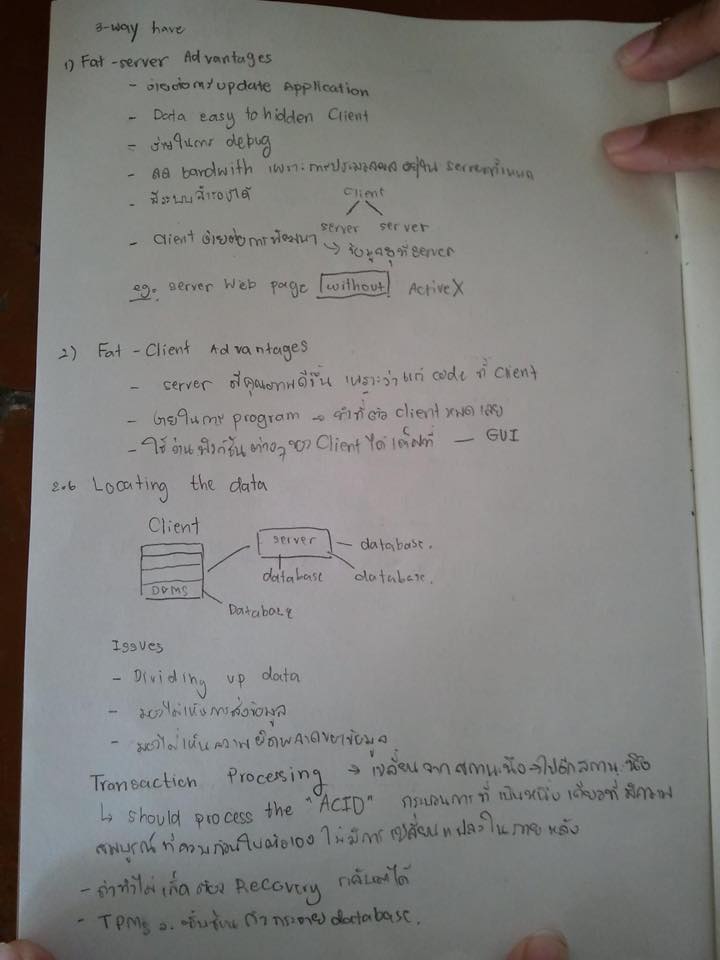 3-way have
1) Fat-server Advantages
- ง่ายต่อการ update Application
- Data easy to hidden Client
- ง่ายในการ debug
- ลด bandwith เพราะการประมวลผลอยู่ใน server ทั้งหมด
- มีระบบสำรองได้
Client
server server
- Client ง่ายต่อการพัฒนา
↳ ข้อมูลอยู่ที่ server
eg. server Web page without ActiveX
2) Fat-Client Advantages
- server มีคุณภาพดีขึ้น เพราะว่าแก้ code ที่ Client
- ง่ายในการ program → ทำที่ตัว Client หมดเลย
- ใช้งานฟังก์ชันต่างๆ ของ Client ได้เต็มที่ — GUI
2.6 Locating the data
Client
server — database.
database database.
DBMS
Database
Issues
- Dividing up data
- มองไม่เห็นการส่งข้อมูล
- มองไม่เห็นความผิดพลาดของข้อมูล
Transaction Processing → เปลี่ยนจากสถานะนึง → ไปอีกสถานะนึง
↳ should process the "ACID" กระบวนการที่เป็นหนึ่งเดียวที่มีความ
สมบูรณ์ที่ ในตัวเอง ไม่มีการเปลี่ยนแปลงในภายหลัง
- ถ้าทำไม่ ต้อง Recovery กลับมาได้
- TPMs กระจาย database.